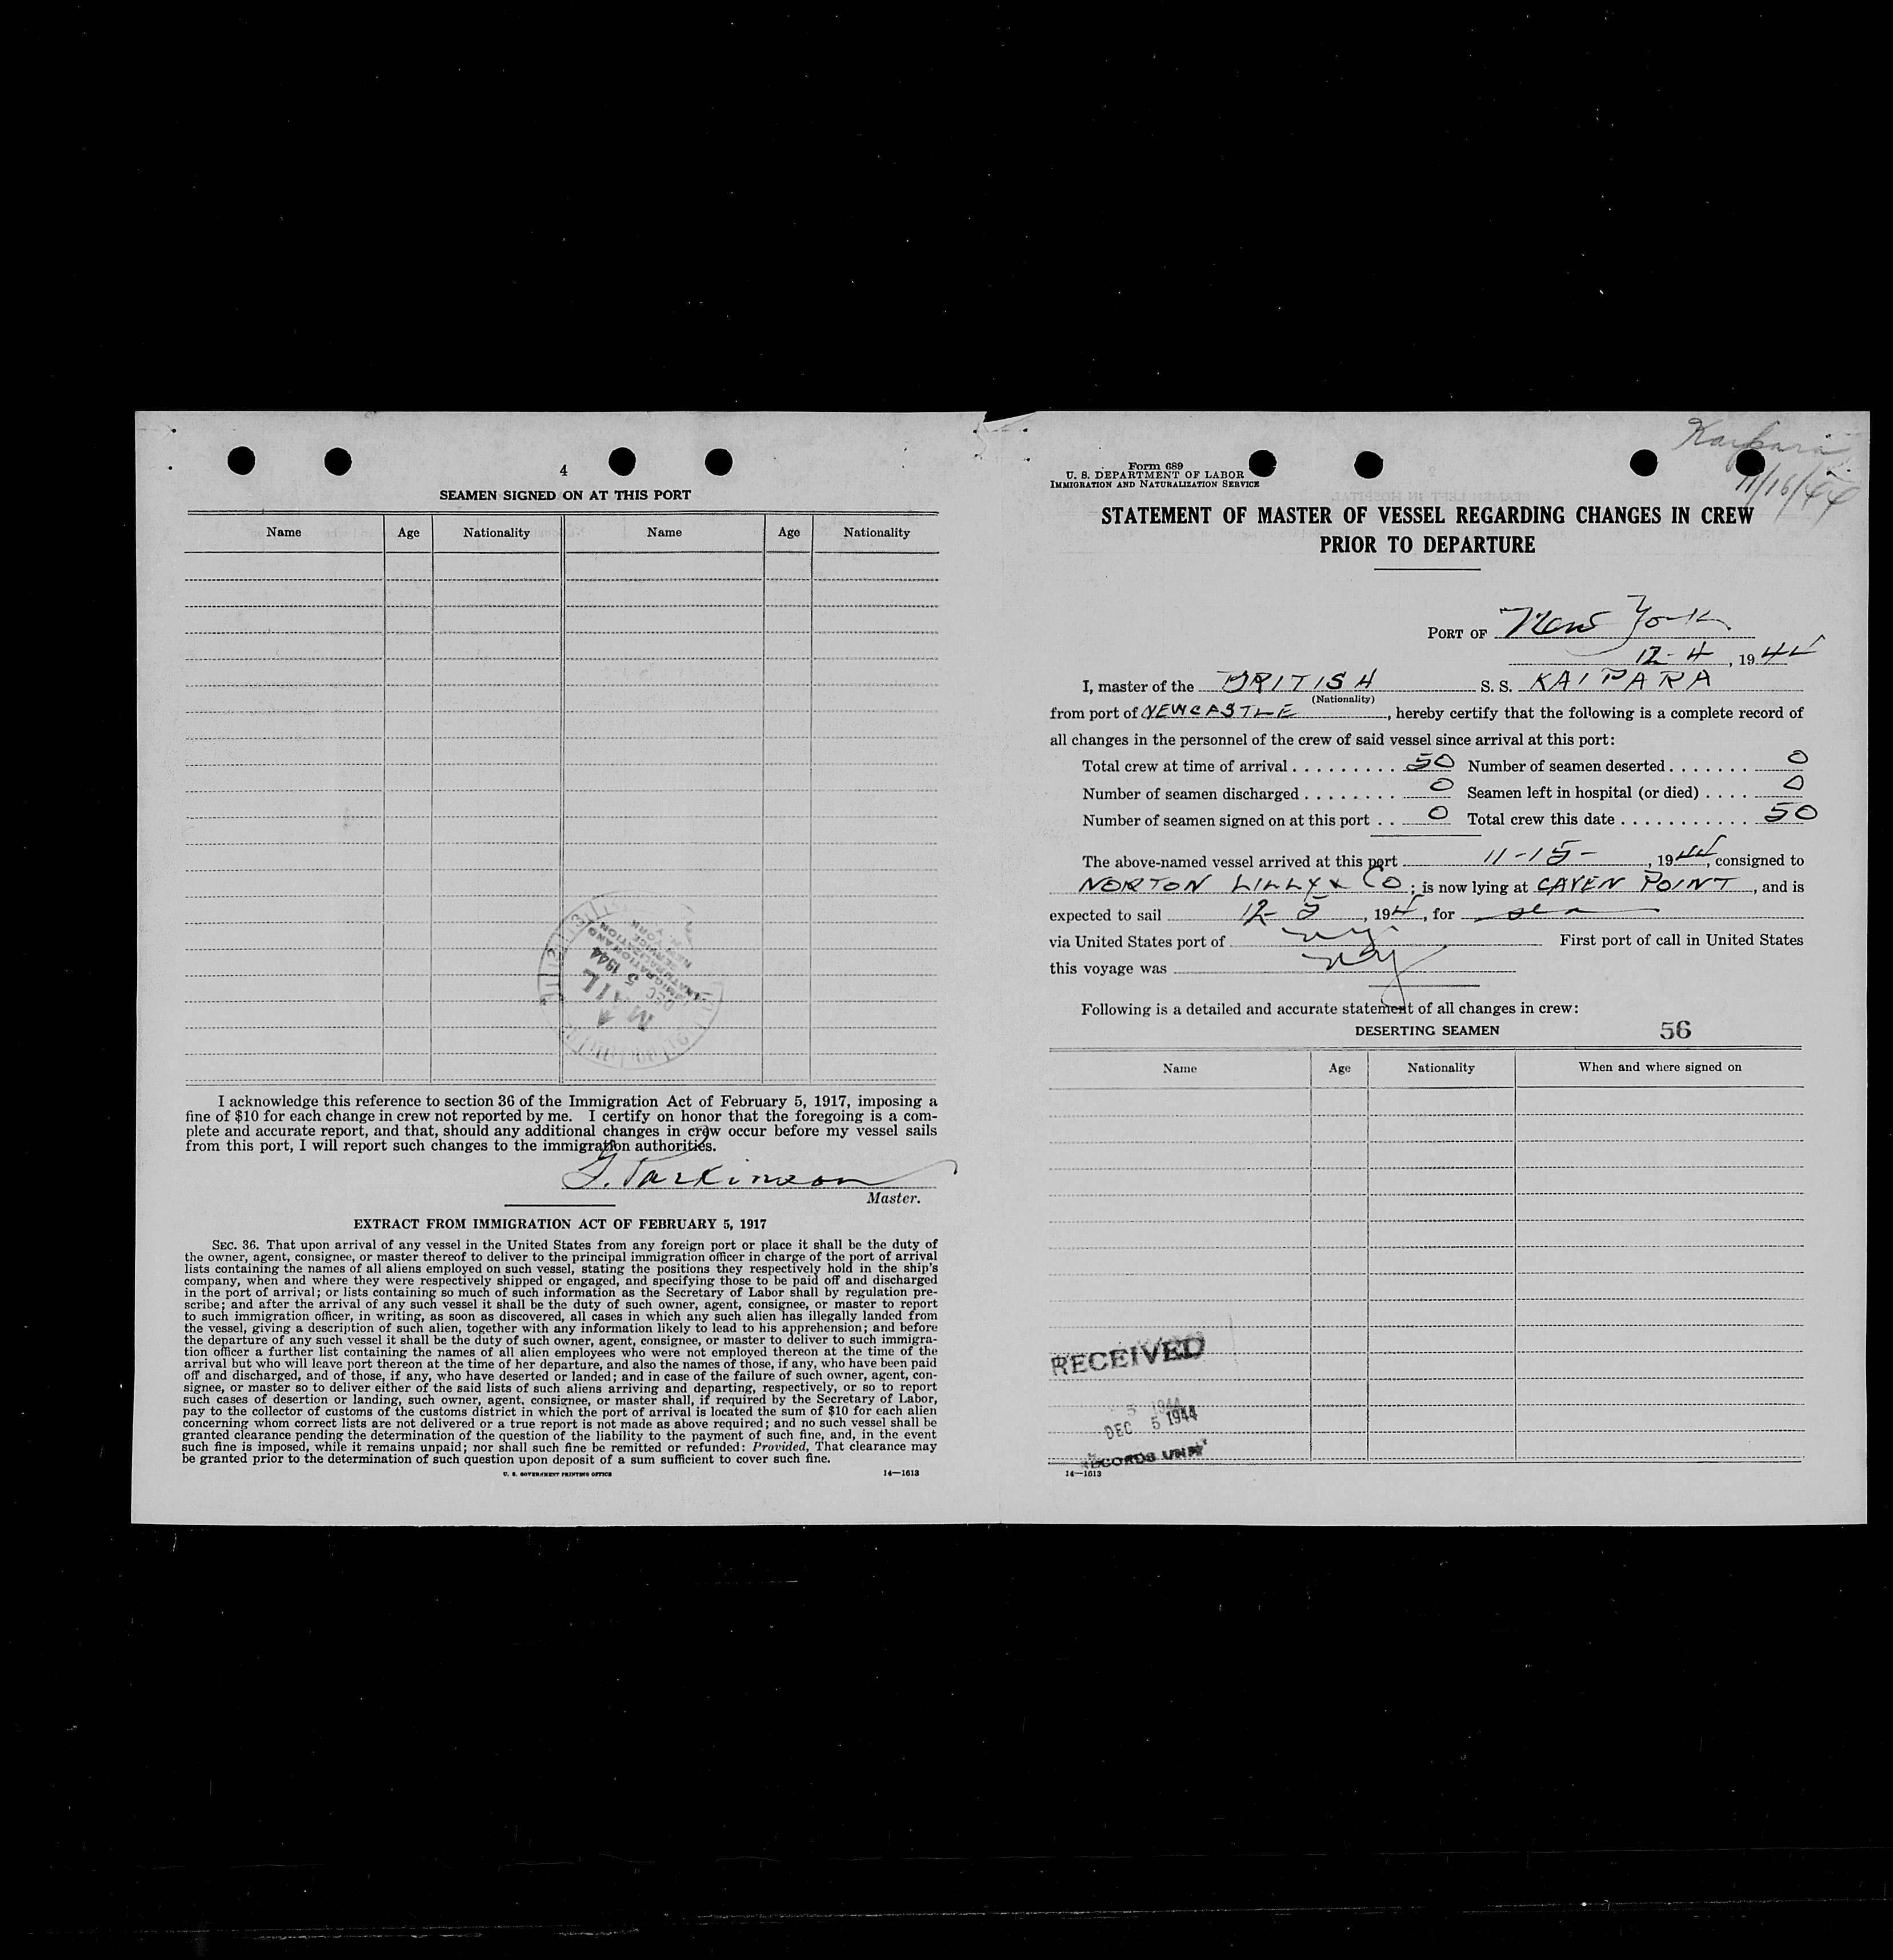 4
SEAMEN SIGNED ON AT THIS PORT
Name Age Nationality Name Age Nationality
MAIL
DEC 5 1944
I acknowledge this reference to section 36 of the Immigration Act of February 5, 1917, imposing a
fine of $10 for each change in crew not reported by me. I certify on honor that the foregoing is a com-
plete and accurate report, and that, should any additional changes in crew occur before my vessel sails
from this port, I will report such changes to the immigration authorities.
G. Parkinson
Master.
EXTRACT FROM IMMIGRATION ACT OF FEBRUARY 5, 1917
SEC. 36. That upon arrival of any vessel in the United States from any foreign port or place it shall be the duty of
the owner, agent, consignee, or master thereof to deliver to the principal immigration officer in charge of the port of arrival
lists containing the names of all aliens employed on such vessel, stating the positions they respectively hold in the ship's
company, when and where they were respectively shipped or engaged, and specifying those to be paid off and discharged
in the port of arrival; or lists containing so much of such information as the Secretary of Labor shall by regulation pre-
scribe; and after the arrival of any such vessel it shall be the duty of such owner, agent, consignee, or master to report
to such immigration officer, in writing, as soon as discovered, all cases in which any such alien has illegally landed from
the vessel, giving a description of such alien, together with any information likely to lead to his apprehension; and before
the departure of any such vessel it shall be the duty of such owner, agent, consignee, or master to deliver to such immigra-
tion officer a further list containing the names of all alien employees who were not employed thereon at the time of the
arrival but who will leave port thereon at the time of her departure, and also the names of those, if any, who have been paid
off and discharged, and of those, if any, who have deserted or landed; and in case of the failure of such owner, agent, con-
signee, or master so to deliver either of the said lists of such aliens arriving and departing, respectively, or so to report
such cases of desertion or landing, such owner, agent, consignee, or master shall, if required by the Secretary of Labor,
pay to the collector of customs of the customs district in which the port of arrival is located the sum of $10 for each alien
concerning whom correct lists are not delivered or a true report is not made as above required; and no such vessel shall be
granted clearance pending the determination of the question of the liability to the payment of such fine, and, in the event
such fine is imposed, while it remains unpaid; nor shall such fine be remitted or refunded: Provided, That clearance may
be granted prior to the determination of such question upon deposit of a sum sufficient to cover such fine.
U. S. GOVERNMENT PRINTING OFFICE 14—1613
Kaipara
11/16/44
Form 689
U. S. DEPARTMENT OF LABOR
IMMIGRATION AND NATURALIZATION SERVICE
STATEMENT OF MASTER OF VESSEL REGARDING CHANGES IN CREW
PRIOR TO DEPARTURE
PORT OF New York
12-4, 1944
I, master of the BRITISH S. S. KAIPARA
(Nationality)
from port of NEWCASTLE, hereby certify that the following is a complete record of
all changes in the personnel of the crew of said vessel since arrival at this port:
Total crew at time of arrival 50 Number of seamen deserted 0
Number of seamen discharged 0 Seamen left in hospital (or died) 0
Number of seamen signed on at this port 0 Total crew this date 50
The above-named vessel arrived at this port 11-15-, 1944, consigned to
NORTON LILLY & Co; is now lying at CAVEN POINT, and is
expected to sail 12-5, 1944, for sea
via United States port of NY First port of call in United States
this voyage was NY
Following is a detailed and accurate statement of all changes in crew:
DESERTING SEAMEN 56
Name Age Nationality When and where signed on
RECEIVED
DEC 5 1944
RECORDS UNIT
14—1613